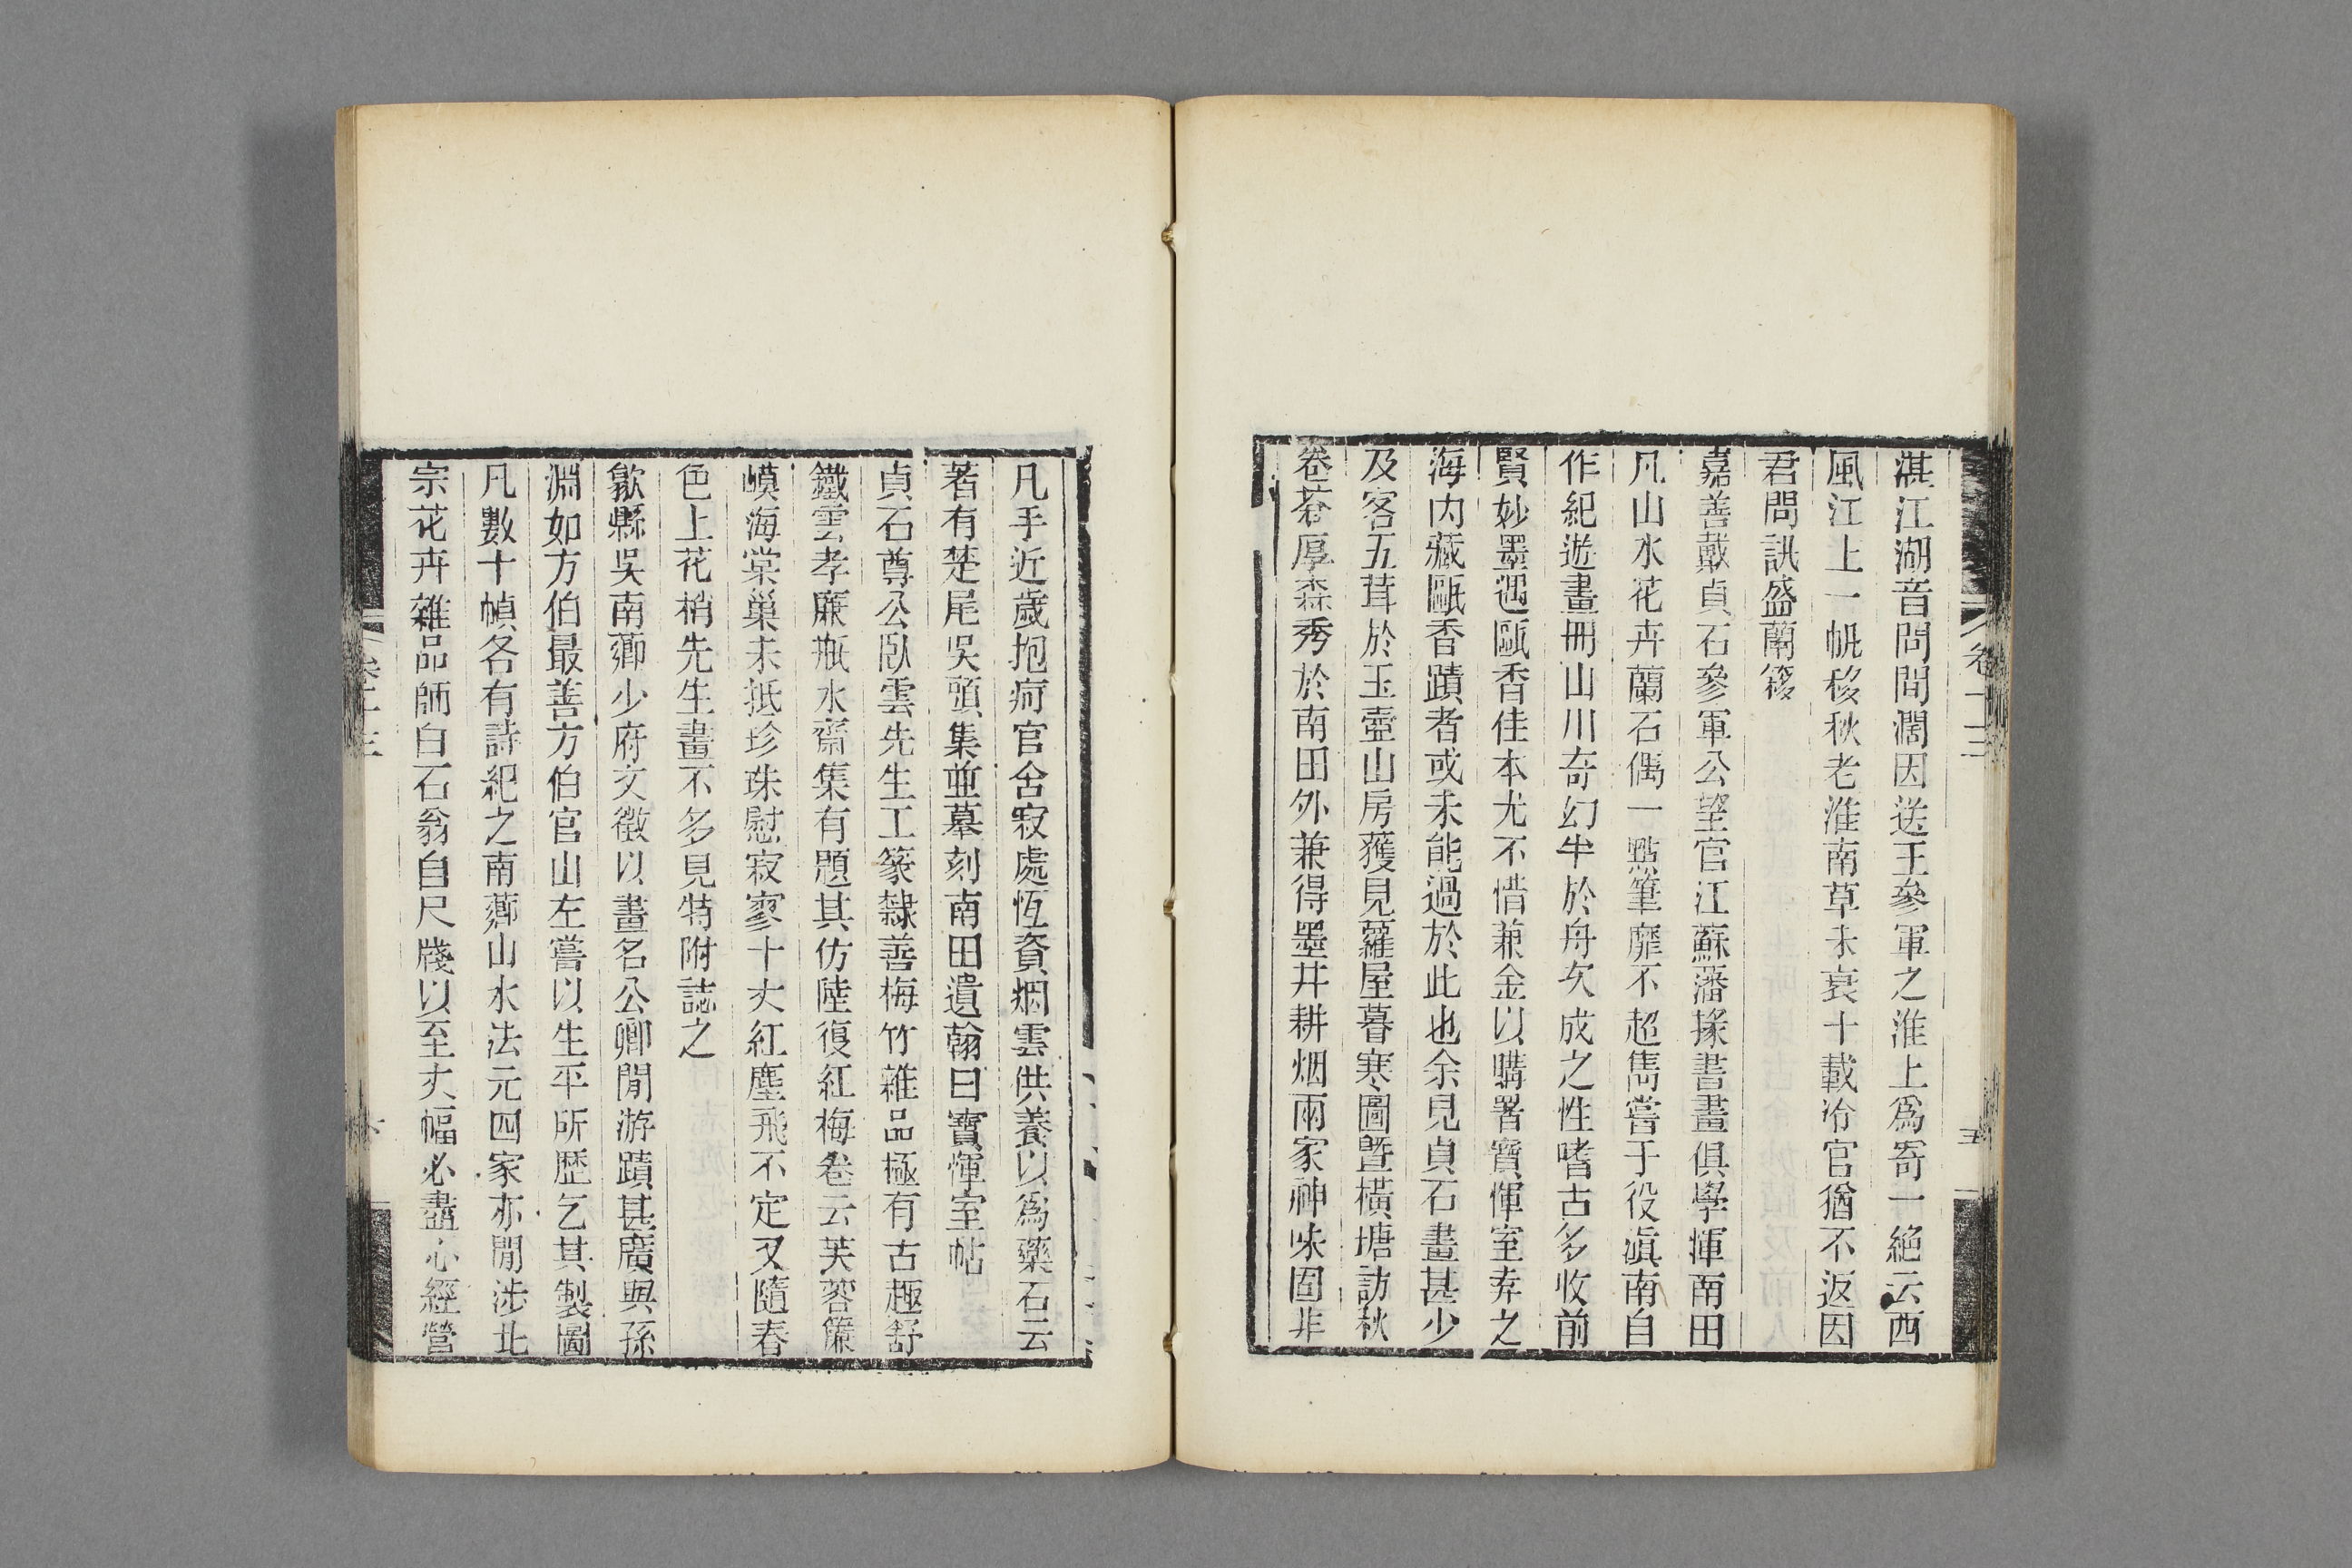 湛江湖音問間濶因送王參軍之淮上爲寄一絕云西
風江上一帆移秋老淮南草未衰十載冷官猶不返因
君問訊盛蘭簃
嘉善戴貞石參軍公望官江蘇藩掾書畫俱學惲南田
凡山水花卉蘭石偶一點筆靡不超雋嘗于役滇南自
作紀遊畫冊山川奇幻半於舟次成之性嗜古多收前
賢妙墨遇甌香佳本尤不惜兼金以購署寶惲室弆之
海內藏甌香蹟者或未能過於此也余見貞石畫甚少
及客五茸於玉壺山房獲見蘿屋暮寒圖暨橫塘訪秋
卷蒼厚森秀於南田外兼得墨井耕烟兩家神味固非
卷十三
五
凡手近歲抱疴官舍寂處恆資烟雲供養以爲藥石云
著有楚尾吳頭集並摹刻南田遺翰曰寶惲室帖
貞石尊公臥雲先生工篆隸善梅竹雜品極有古趣舒
鐵雲孝廉瓶水齋集有題其仿陸復紅梅卷云芙蓉簾
幙海棠巢未抵珍珠慰寂寥十丈紅塵飛不定又隨春
色上花梢先生畫不多見特附誌之
歙縣吳南薌少府文徵以畫名公卿閒游蹟甚廣與孫
淵如方伯最善方伯官山左嘗以生平所歷乞其製圖
凡數十幀各有詩紀之南薌山水法元四家亦閒涉北
宗花卉雜品師白石翁自尺牋以至丈幅必盡心經營
卷十三